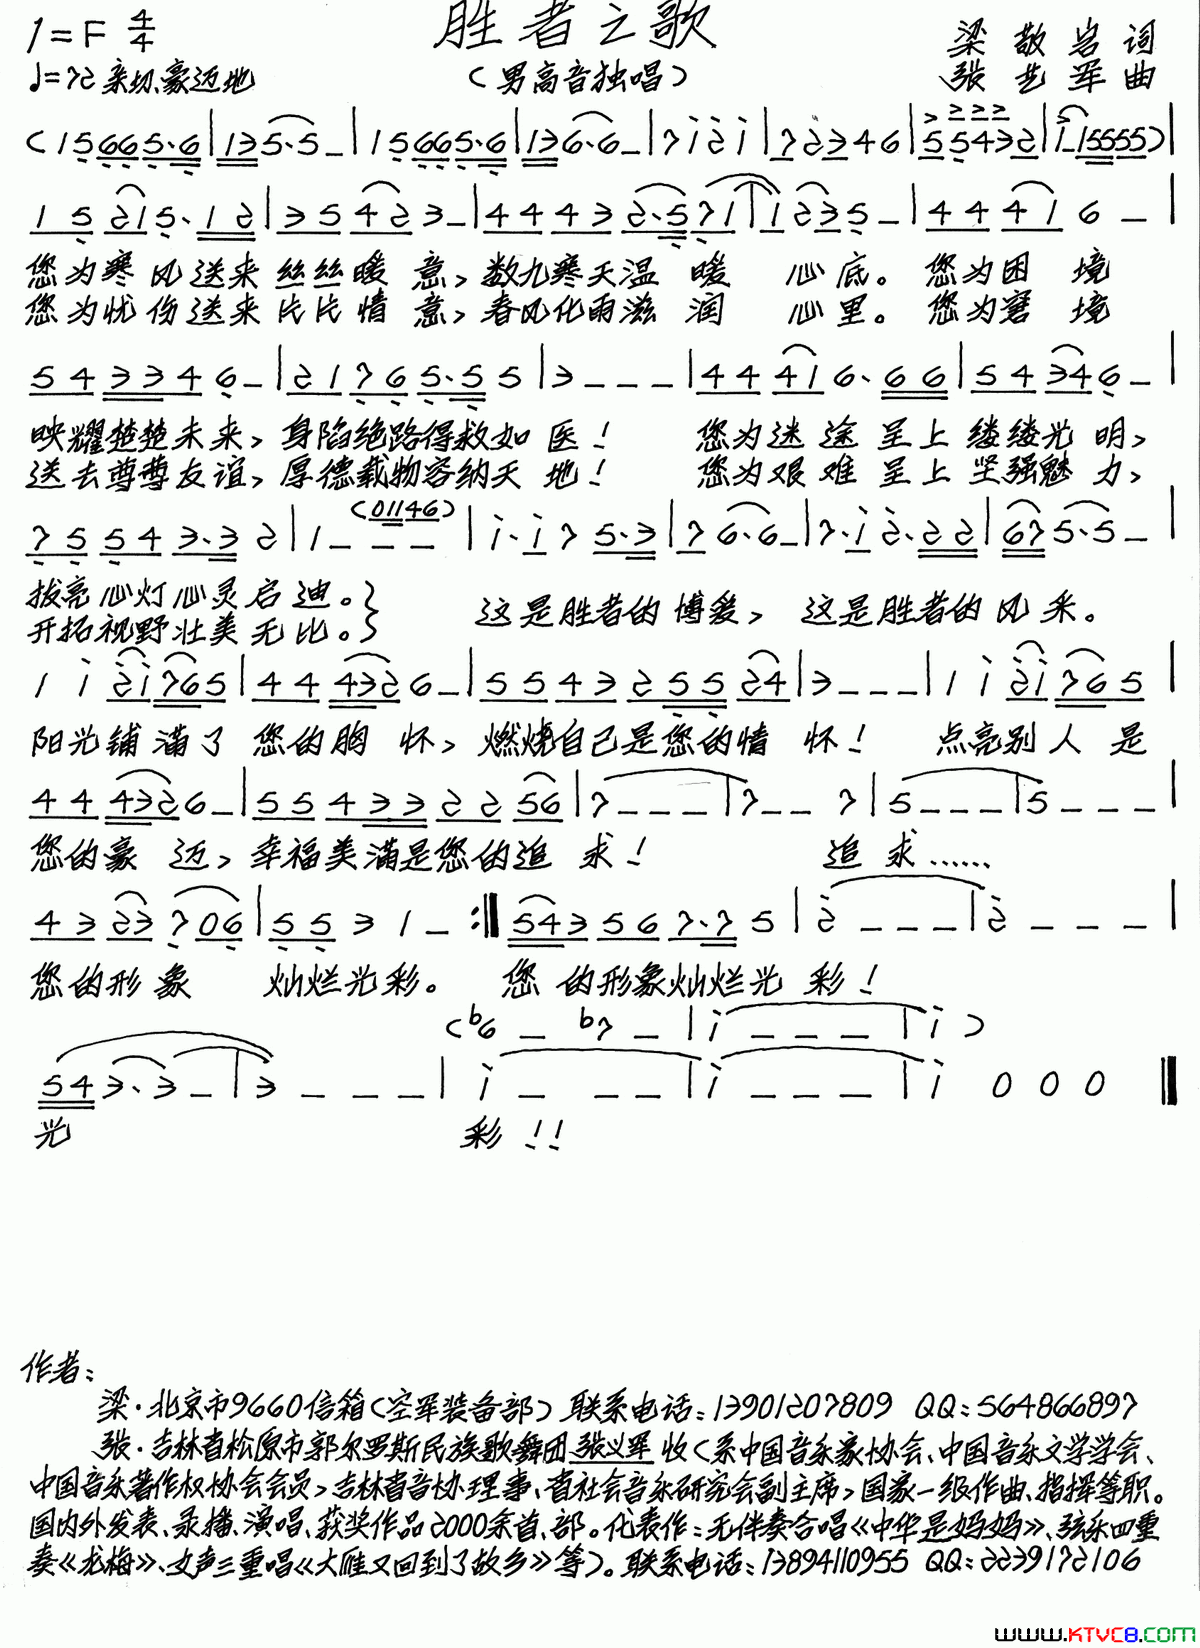 胜者之歌
1=F 4/4
(男高音独唱)
梁敬岩 词
♩=72 亲切、豪迈地
张艺军 曲
(1 5 6 6 5·6 | 1 3 5·5 – | 1 5 6 6 5·6 | 1 3 6·6 – | 7 i 2 i | 7 2 3 4 6 | 5 5 4 3 2 | 1 1 5 5 5 5) |
1 5 2 1 5·1 2 | 3 5 4 2 3 – | 4 4 4 3 2·5 7 1 | 1 2 3 5 – | 4 4 4 1 6 – |
您为寒风送来丝丝暖意,数九寒天温暖 心底。您为困境
您为忧伤送来片片情意,春风化雨滋润 心里。您为窘境
5 4 3 3 4 6 – | 2 1 7 6 5·5 5 | 3 – – – | 4 4 4 1 6·6 6 | 5 4 3 4 6 – |
映耀楚楚未来,身陷绝路得救如医! 您为迷途呈上缕缕光明,
送去尊尊友谊,厚德载物容纳天地! 您为艰难呈上坚强魅力,
(0 1 1 4 6)
7 5 5 4 3·3 2 | 1 – – – | i·i 7 5·3 | 7 6·6 – | 7·i 2·2 2 | 6 7 5·5 – |
拔亮心灯心灵启迪。} 这是胜者的博爱,这是胜者的风采。
开拓视野壮美无比。}
1 i 2 i 7 6 5 | 4 4 4 3 2 6 – | 5 5 4 3 2 5 5 2 4 | 3 – – – | 1 i 2 i 7 6 5 |
阳光铺满了您的胸怀,燃烧自己是您的情怀! 点亮别人是
4 4 4 3 2 6 – | 5 5 4 3 3 2 2 5 6 | 7 – – – | 7 – – 7 | 5 – – – | 5 – – – |
您的豪迈,幸福美满是您的追求! 追求……
4 3 2 3 7 0 6 | 5 5 3 1 – :‖ 5 4 3 5 6 7·7 5 | 2 – – – | 2 – – – |
您的形象 灿烂光彩。 您的形象灿烂光彩!
(♭6 – ♭7 – | i – – – | i )
5 4 3·3 – | 3 – – – | i – – – | i – – – | i 0 0 0 ‖
光 彩!!
作者:
梁·北京市9660信箱(空军装备部)联系电话:13901207809 QQ:564866897
张·吉林省松原市郭尔罗斯民族歌舞团 张义军 收(系中国音乐家协会、中国音乐文学学会、
中国音乐著作权协会会员,吉林省音协理事、省社会音乐研究会副主席,国家一级作曲、指挥等职。
国内外发表、录播、演唱、获奖作品2000余首、部。代表作:无伴奏合唱《中华是妈妈》、弦乐四重
奏《龙梅》、女声三重唱《大雁又回到了故乡》等)。联系电话:13894110955 QQ:2239172106
www.KTVC8.com